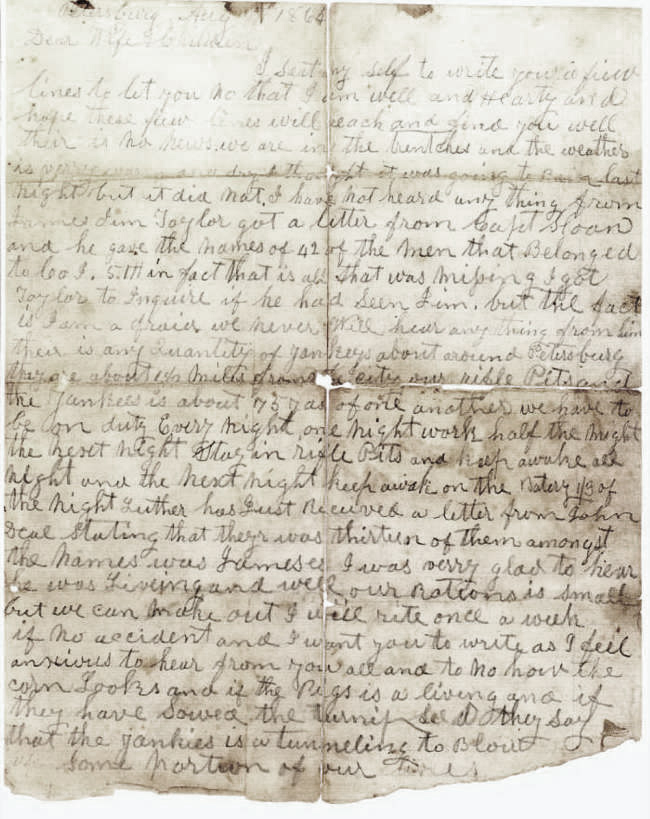 Petersburg, Aug 1864
Dear Wife & Children
I seat my self to write you a fiew
lines to let you no that I am well and Hearty and
hope these fiew lines will reach and find you well
their is no news. we are in the trentches and the weather
is very warm and dry I thought it was going to Rain last
night but it did not. I have not heard any thing from
James. Jim Taylor got a letter from Capt Sloan
and he gave the names of 42 of the men that Belonged
to Co I. 5. in fact that is all that was missing I got
Taylor to Inquire if he had seen Jim. but the fact
is I am a fraid we never Will hear any thing from him
their is any Quantity of yankeys about around Petersburg
they are about Miles from city our rifle Pits and
the yankees is about 75 yds of one another we have to
be on duty Every night, one night work half the night
the next night Stay in rifle Pits and keep awake all
night and the next night keep awake on the Batery 1/3 of
the night Luther has Just Received a letter from John
Deal Stating that they was thirteen of them amongst
the names was Jameses I was verry glad to hear
he was Liveing and well our Rations is small
but we can make out I will rite once a week
if no accident and I want you to write as I feil
anxious to hear from you all and to no how the
corn Looks and if the Pigs is a living and if
they have Sowed the turnip they say
that the yankies is a tunneling to Blow
some Portion of our